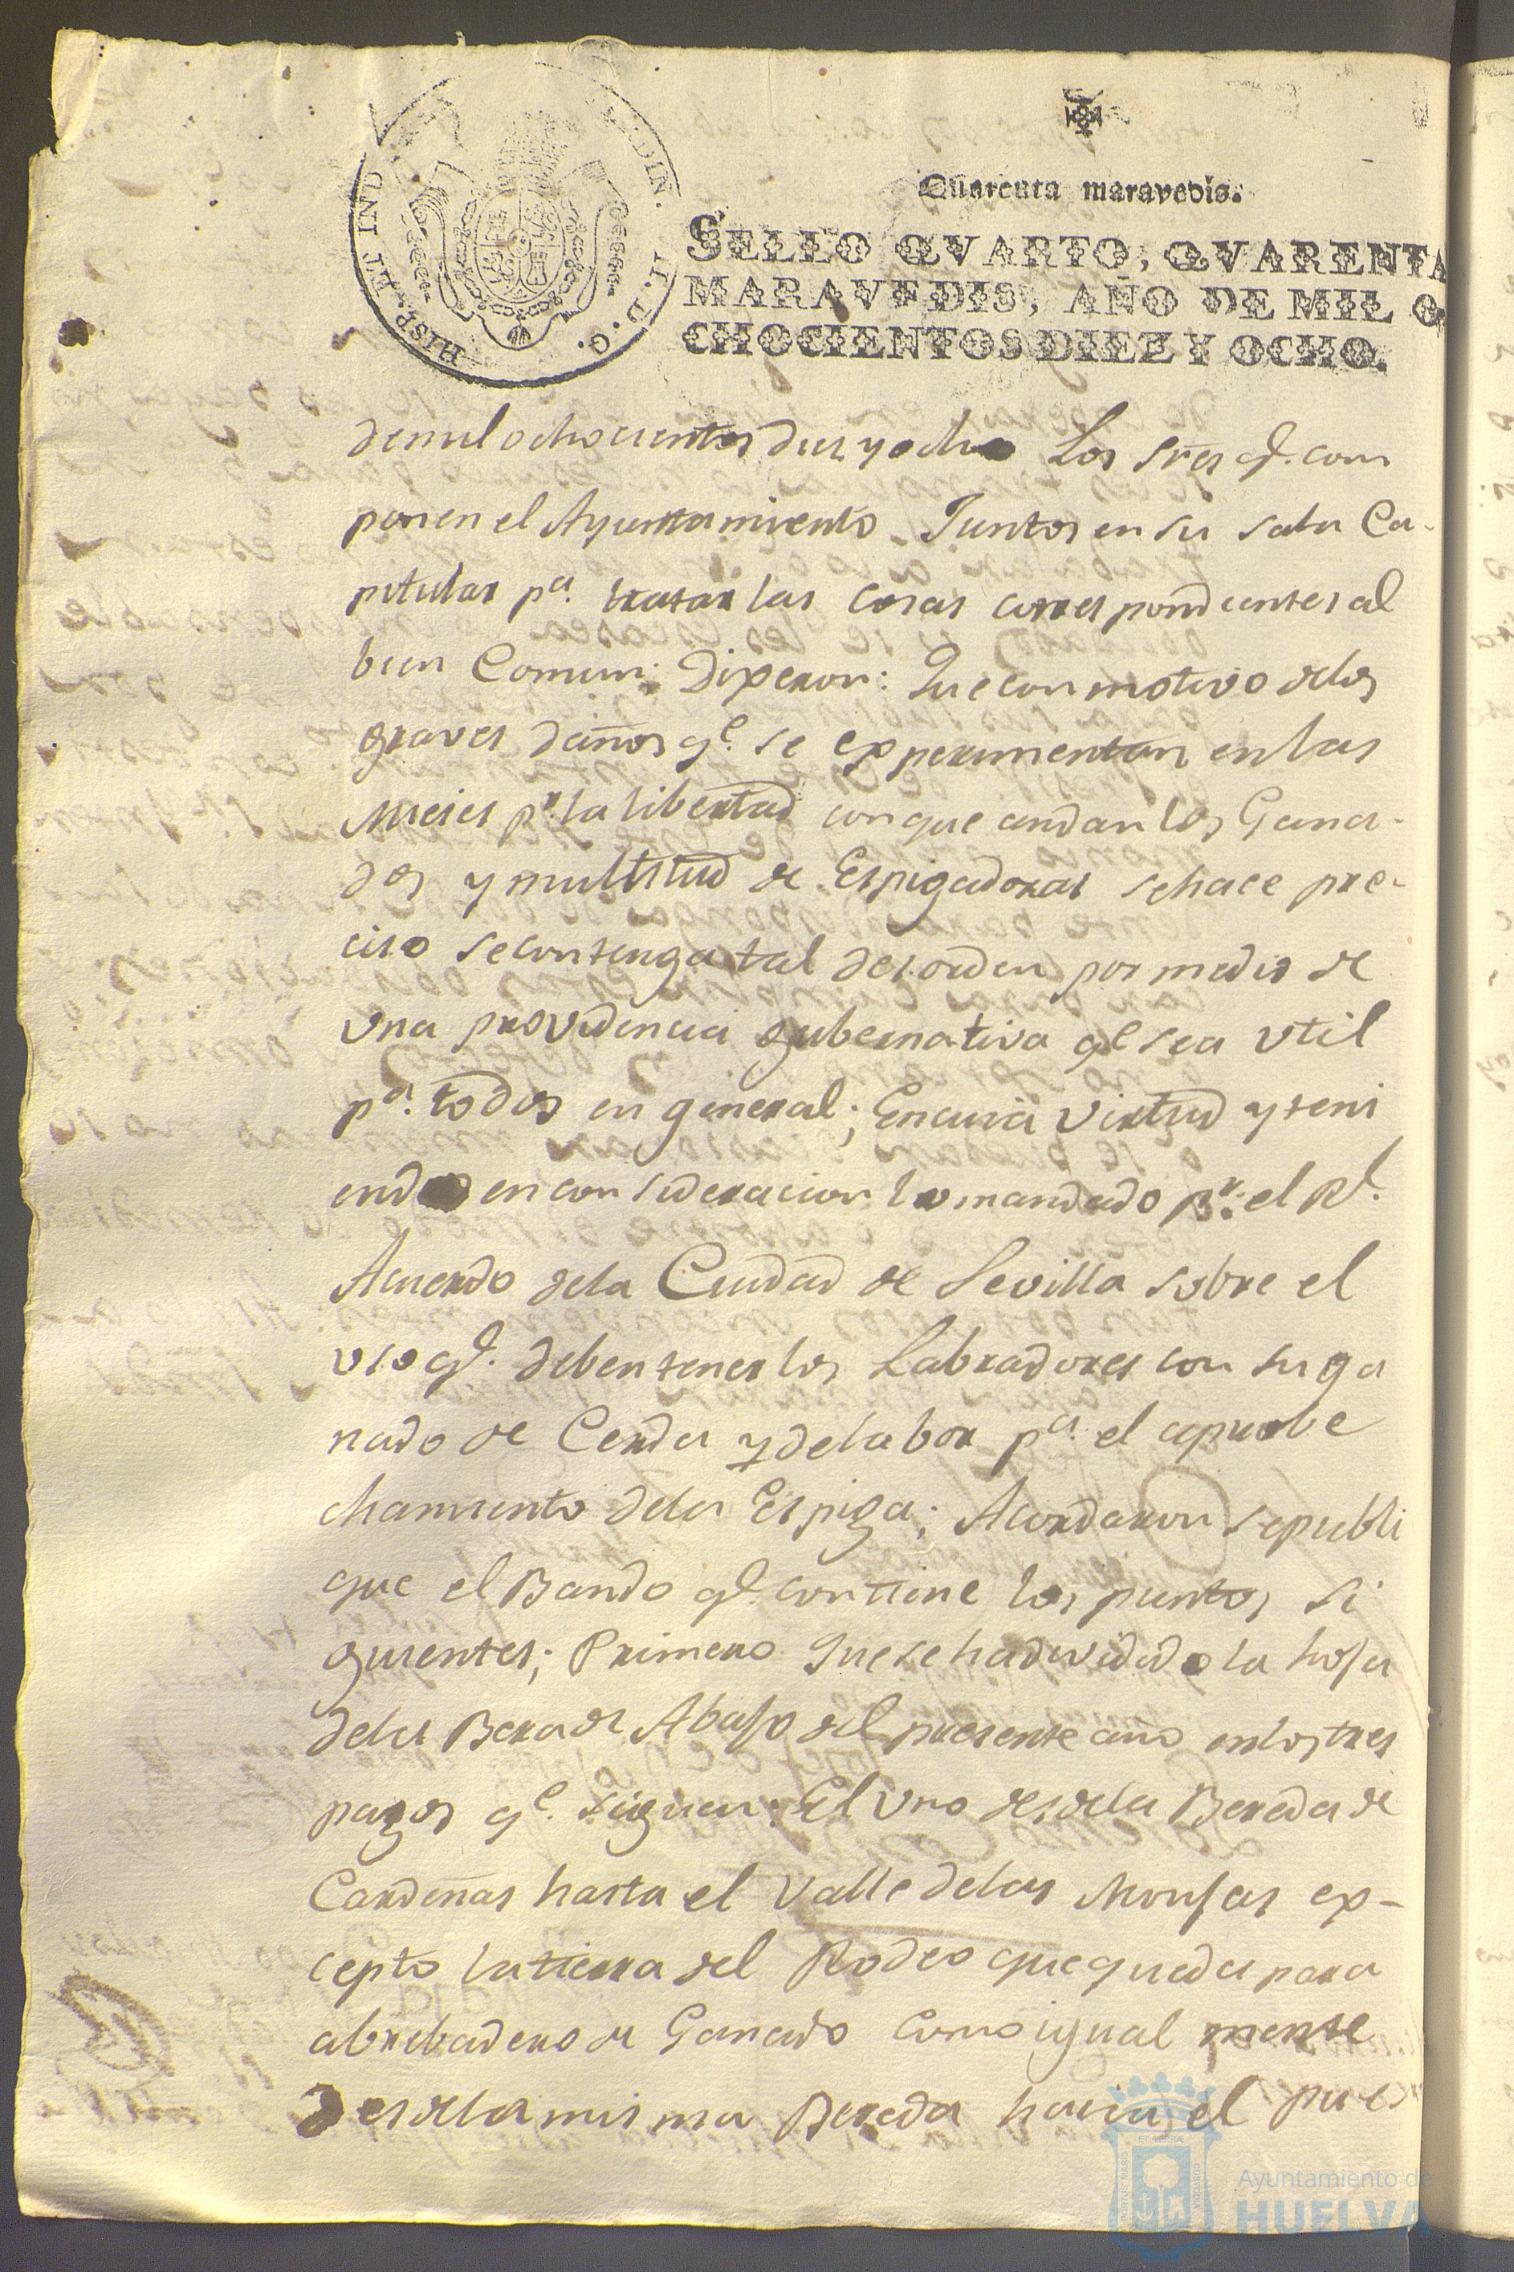 Quarenta maravedis.
SELLO QVARTO, QVARENTA
MARAVEDIS, AÑO DE MIL O
CHOCIENTOS DIEZ Y OCHO.
HISP. ET IND
I. D. G.
de mil ochocientos diez y ocho Los Sres. qe. com
ponen el Ayuntamiento Juntos en su sala Ca-
pitular pa. tratar las cosas correspondientes al
bien Comun; Dixeron: Que con motivo de los
graves daños qe. se experimentan en las
Mieses pr. la libertad con que andan los Gana-
dos y multitud de Espigadoras se hace pre-
ciso se contenga tal desorden por medio de
una providencia gubernativa qe sea util
pa. todos en general; En cuia virtud y teni
endo en consideracion lo mandado pr. el Rl.
Acuerdo de la Ciudad de Sevilla sobre el
uso qe. deben tener los Labradores con su ga
nado de Cerda y de labor pa. el aprobe
chamiento de la Espiga; Acordaron se publi
que el Bando qe. contiene los puntos si
guientes; Primero Que se ha dividido la hoja
de la Bera de Abajo del presente año en los tres
pagos qe. siguen: El uno desde la Bereda de
Cardeñas hasta el Valle de las Monjas ex-
cepto la tierra del Rodeo que queda para
abrebadero de Ganado como igual mente
desde la misma Bereda hacia el pues
Ayuntamiento de
HUELVA